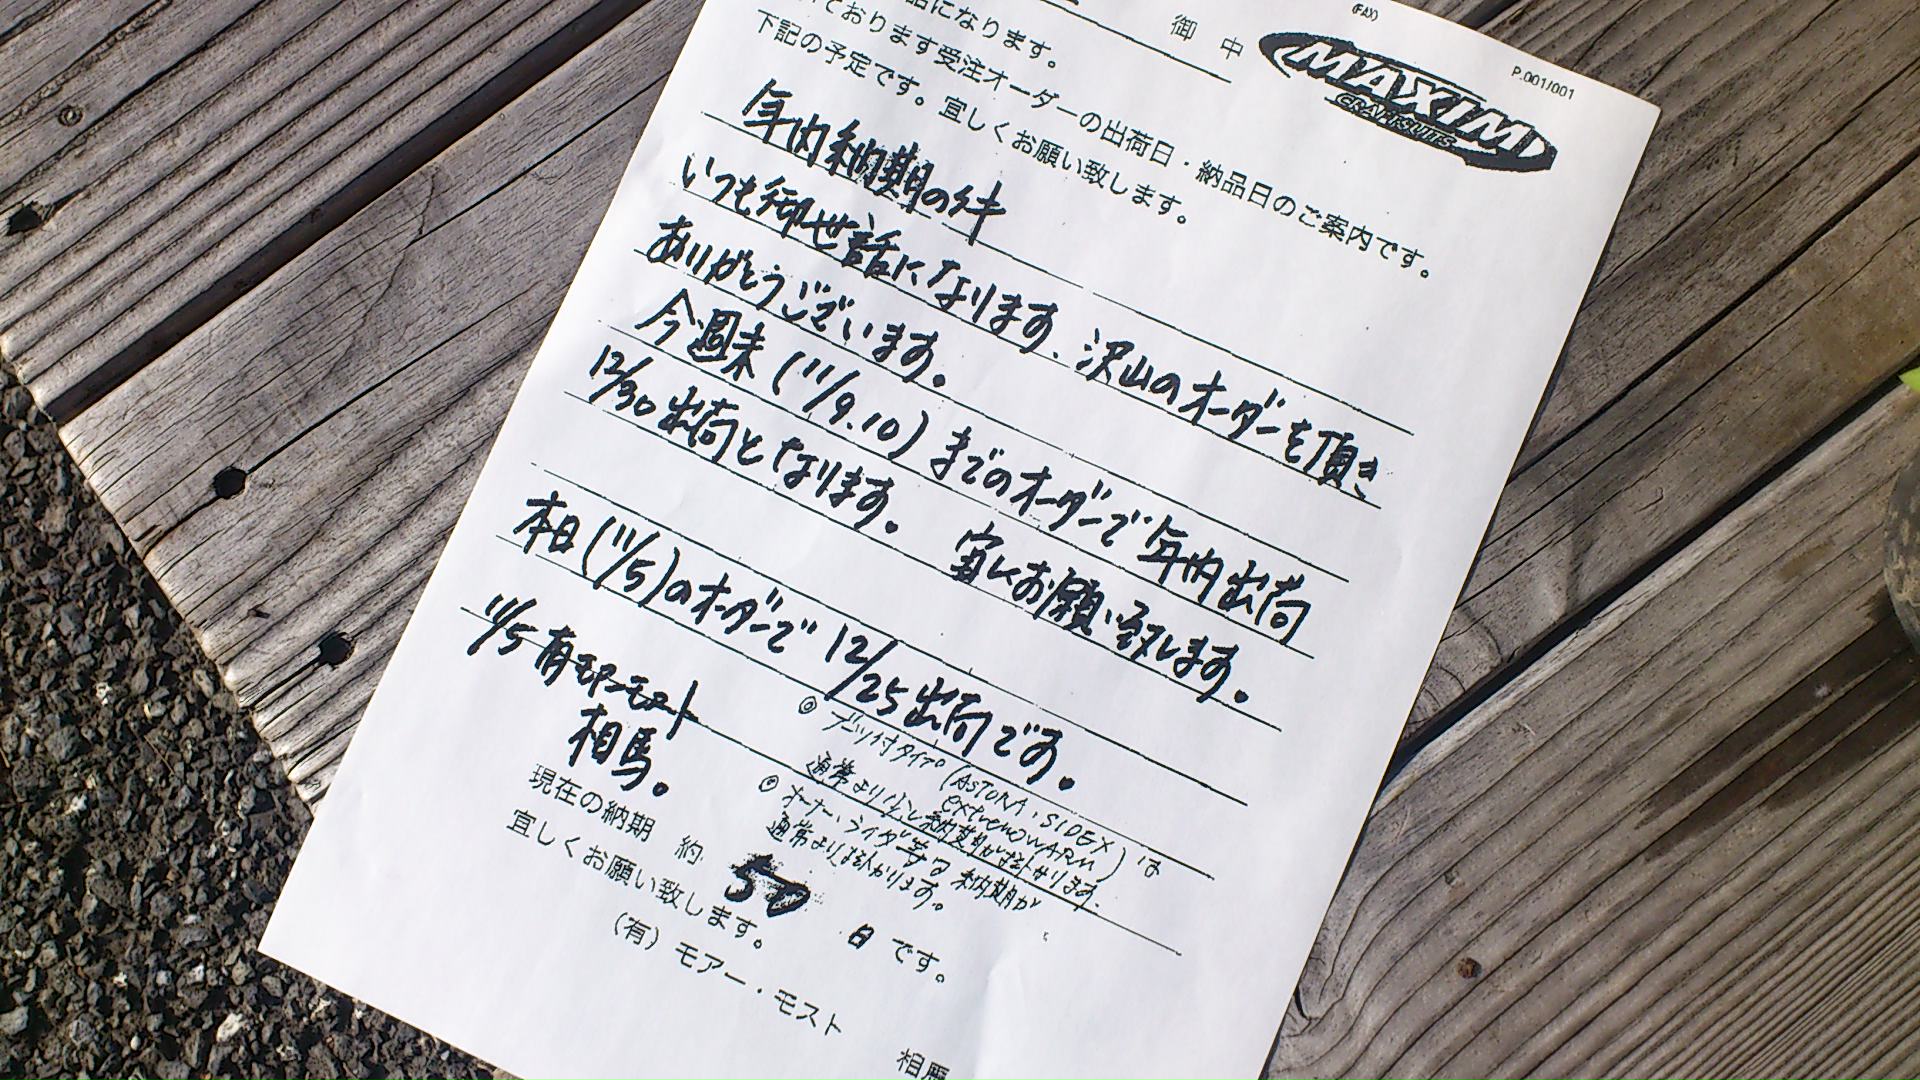 (FAX)
P.001/001
御 中
MAXIM
CRAFTSUITS
話になります。
ております受注オーダーの出荷日・納品日のご案内です。
下記の予定です。宜しくお願い致します。
年内納期の件
いつも御世話になります、沢山のオーダーを頂き
ありがとうございます。
今週末(11/9.10)までのオーダーで年内出荷
12/30出荷となります。 宜しくお願い致します。
本日(11/5)のオーダーで12/25出荷です。
11/5 有モアーモスト
相馬。
◎ブーツ付タイプ(ASTORA・SIDEX
extremoWARM)は
通常より少し納期が掛かります。
◎オーナーライダー等は納期が
通常より掛かります。
現在の納期 約 50 日 です。
宜しくお願い致します。
(有)モアー・モスト